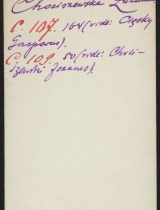 Chociszewska
C. 107. 164 (vide: Ciązky
Gasparus).
C. 109. 50 (vide: Choci-
szewski Joannes).